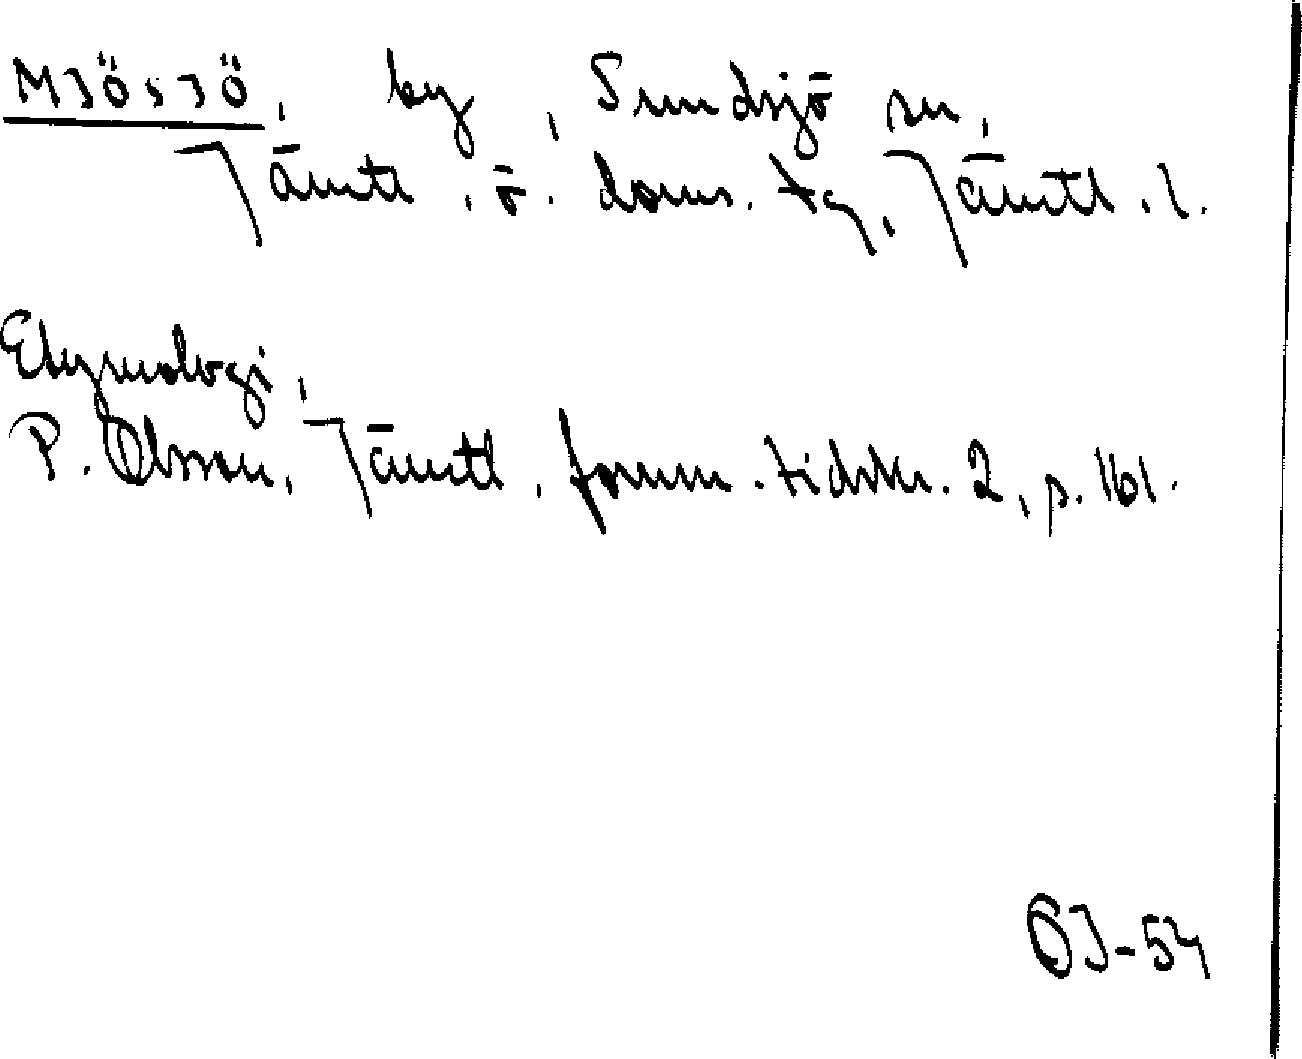 MJÖSJÖ, by, Sundsjö sn,
Jämtl. ö. doms. tg, Jämtl. l.
Etymologi,
P. Olsson, Jämtl. fornm. tidskr. 2, p. 161.
ÖJ-54